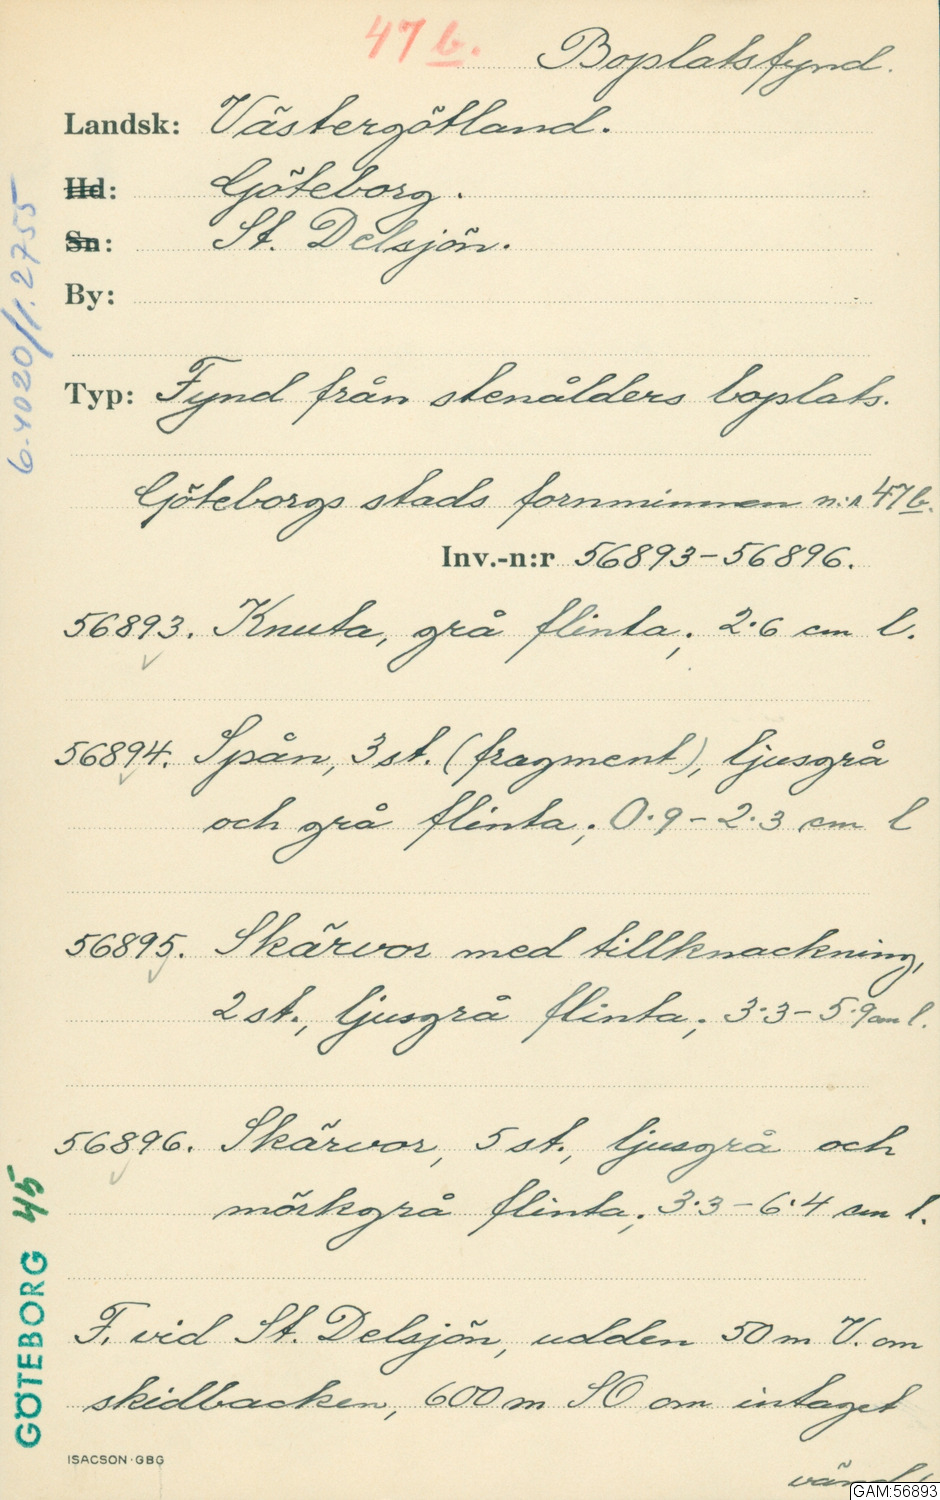 47 b.
Boplatsfynd.
Landsk: Västergötland.
Hd: Göteborg.
Sn: St. Delsjön.
By:
Typ: Fynd från stenålders boplats.
Göteborgs stads fornminnen n:r 47 b.
Inv.-n:r 56893-56896.
56893. Knuta, grå flinta; 2·6 cm l.
56894. Spån, 3 st. (fragment), ljusgrå
och grå flinta; 0·9-2·3 cm l
56895. Skärvor med tillknackning,
2 st., ljusgrå flinta; 3·3-5·9 cm l.
56896. Skärvor, 5 st., ljusgrå och
mörkgrå flinta; 3·3-6·4 cm l.
F. vid St. Delsjön, udden 50 m V. om
skidbacken, 600 m SO om intaget
vänd!
ISACSON·GBG
GÖTEBORG 45
6-4020/1.2755
GAM:56893